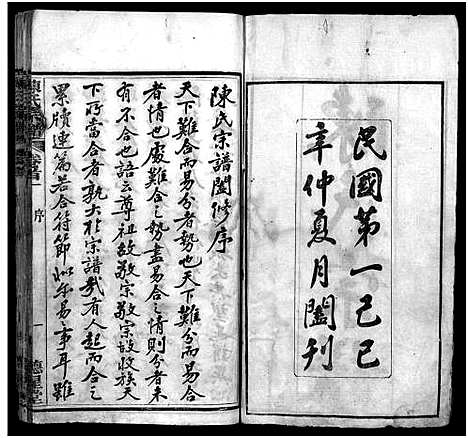 民國第一己巳
年仲夏月闔刊
陳氏宗譜闔修序
天下難合而易分者勢也天下難分而易合
者情也處難合之勢盡易合之情則分者未
有不合也語云尊祖故敬宗敬宗故收族天
下所當合者孰大於宗譜哉有人起而合之
累牘連篇若合符節此樂易事耳雖
序
一
德星堂